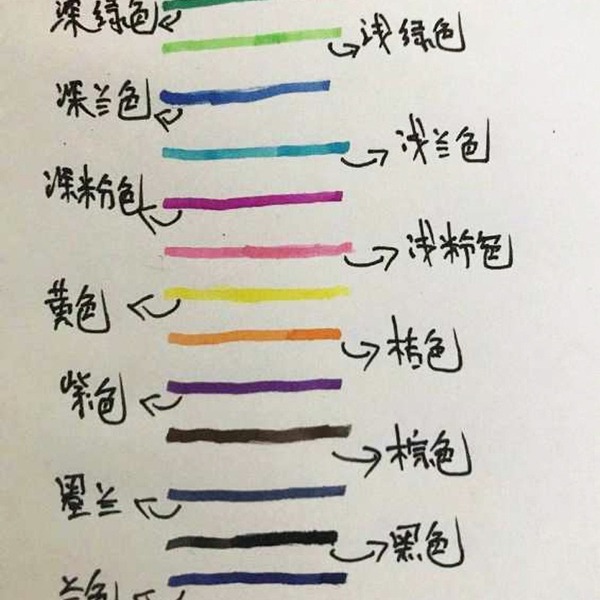 深绿色
浅绿色
深兰色
浅兰色
深粉色
浅粉色
黄色
桔色
紫色
棕色
墨兰
黑色
兰色